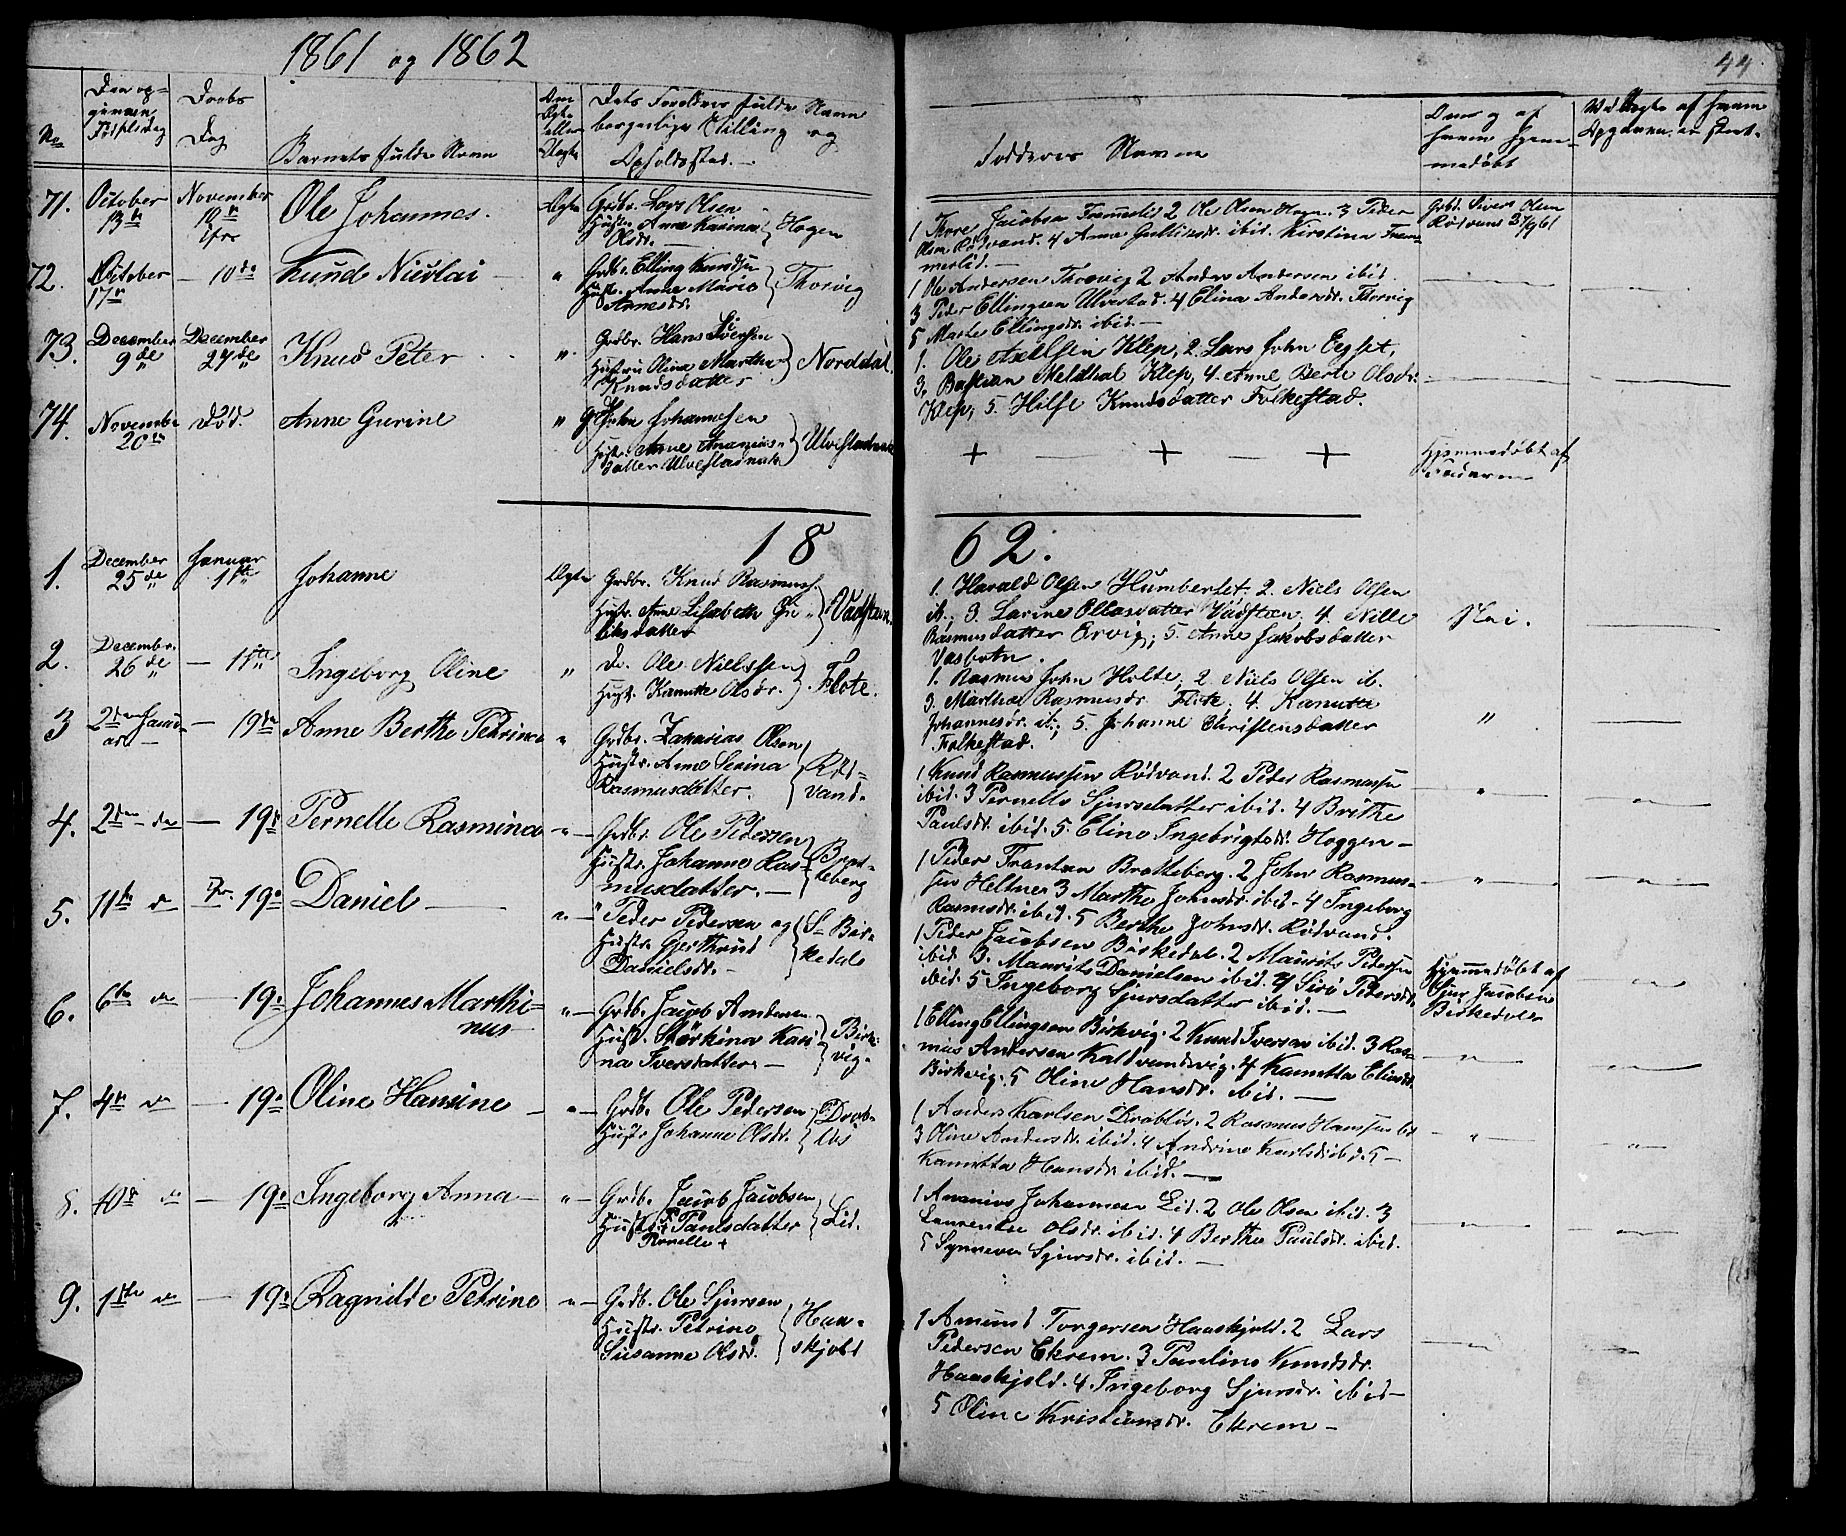 1861 og 1862
44
No
Dag
Barnets fulde Navn
Opholdssted.
Faddernes Navne
71. October 13de November 10de Ole Johannes. Ægte Grdbr. Lars Olsen
Hustr. Anne Karina Olsdr. Hogen
1 Thore Jacobsen 2 Ole Olsen Hogen. 3 Peder
Olsen Rødvand. 4 Anne ibid. Kirstina
Grbd. Siver Olsen
Rødvand
72. October 17de — 10de Knud Nicolai " Grdbr. Elling Knudsen
Hustr. Anne Marie Arnesdr. Thorvig
1 Ole Andersen Thorvig 2 Anders Andersen ibid.
3 Peder Ellingsen Ulvestad. 4 Elina Andersdr. Thorvig
5 Marte Ellingsdr. ibid. —
73. December 9de December 27de Knud Peter " Grdbr. Hans Iversen
Hustru Olina Martha Knudsdatter Norddal.
1. Ole Axelsen Klep, 2. Lars John Eegset,
3. Bastian Meldhal Klep, 4. Anne Berte Olsdr.
Klep, 5. Hilse Knudsdatter Folkestad.
74. November 20de Død. Anne Gurine " John Johannesen
Hustr. Anne Ananiasdatter Ulvestad
+ — + — +
Hjemmedøbt af
Faderen
1862.
1. December 25de Januar 1ste Johanne Ægte Grdbr. Knud Rasmuss.
Hustr. Anne Lisabeth Vadsteen.
1. Harald Olsen Humberset; 2. Niels Olsen
ib.; 3. Larine Ollasdatter Vadsteen. 4. Nille
Rasmusdatter Ervig; 5. Anne Jakobsdatter
Vasbotn.
Nei.
2. December 26de — 1ste Ingeborg Oline " do. Ole Nielssen
Hustr. Kanutte Olsdr. Flote.
1. Rasmus John Holte, 2. Niels Olsen ib.
3. Marthal Rasmusdr. Flote, 4. Kanutte
Johannesdr. ib; 5. Johanne Christensdatter
Folkestad.
"
3 2den Januar — 19de Anne Berthe Petrine " Grdbr. Zakarias Olsen
Hustr. Anne Serina
Rasmusdatter. Rødvand.
1 Knud Rasmussen Rødvand. 2 Peder Rasmussen
ibid. 3 Pernelle Sjursdatter ibid. 4 Brithe
Paulsdr. ibid. 5. Eline Ingebrigtsdr. Heggen —
4. 2den do — 19de Pernelle Rasmina " Grdbr. Ole Pedersen
Hustr. Johanne Rasmusdatter. — Bratteberg
1 Peder Bratteberg. 2 John Rasmussen
Heltne 3 Marthe Johnsdr. ibid. 4 Ingeborg
Rasmsdr. ibid. 5 Berthe Johnsdr. Rødvand.
5. 11te do 19de Daniel — " Peder Pedersen og
Hustr. Gjerthrud
Danielsdr. — Birkedale
1 Peder Jacobsen Birkedal. 2 Maurits Pedersen
ibid. 3. Maurits Danielsen ibid. 4 Siri Pedersdr.
ibid. 5 Ingeborg Sjursdatter ibid. —
Hjemmedøbt af
Sjur Jacobsen
Birkedale
6. 6te do — 19de Johannes Marthinus " Grdb. Jacob Andersen
Hustr. Karina Iversdatter. — Birkvig.
1 Elling Ellingsen Birkvig. 2 Knud Iversen ibid. 3 Rasmus
Andersen Kaldvandsvig. 4 Kanutte Eliasdr.
Birkvig. 5 Oline Hansdr. ibid. —
7. 4de do — 19de Oline Hansine — " — Grdb. Ole Pedersen
Hustr. Johanne Olsdr. Drabløs
1 Anders Karlsen Drabløs. 2 Rasmus Hanssen ibid
3 Oline Andersdr. ibid. 4 Andrine Karlsdr ibid. 5 —
Kanutta Hansdr. ibid. —
8. 10de do — 19de Ingeborg Anna — " — Grdb. Jacob Jacobsen
Hustr. Paulsdatter Lid.
Pernelle +
1 Ananias Johannesen Lid. 2 Ole Olsen ibid. 3
Laurentse Olsdr. ibid. 4 Berthe Paulsdr. ibid.
5 Synneva Sjursdr. ibid. —
9. 1ste do — 19de Ragnilde Petrine " — Grdb. Ole Sjursen
Hustr. Petrine
Susanne Olsdr. Haaskjold
1 Amund Torgersen Haaskjold. 2 Lars
Pedersen Ekrem. 3 Pauline Knudsdr.
Haaskjold. 4. Ingeborg Sjursdr. ibid —
5 Oline Kristiansdr. Ekrem —